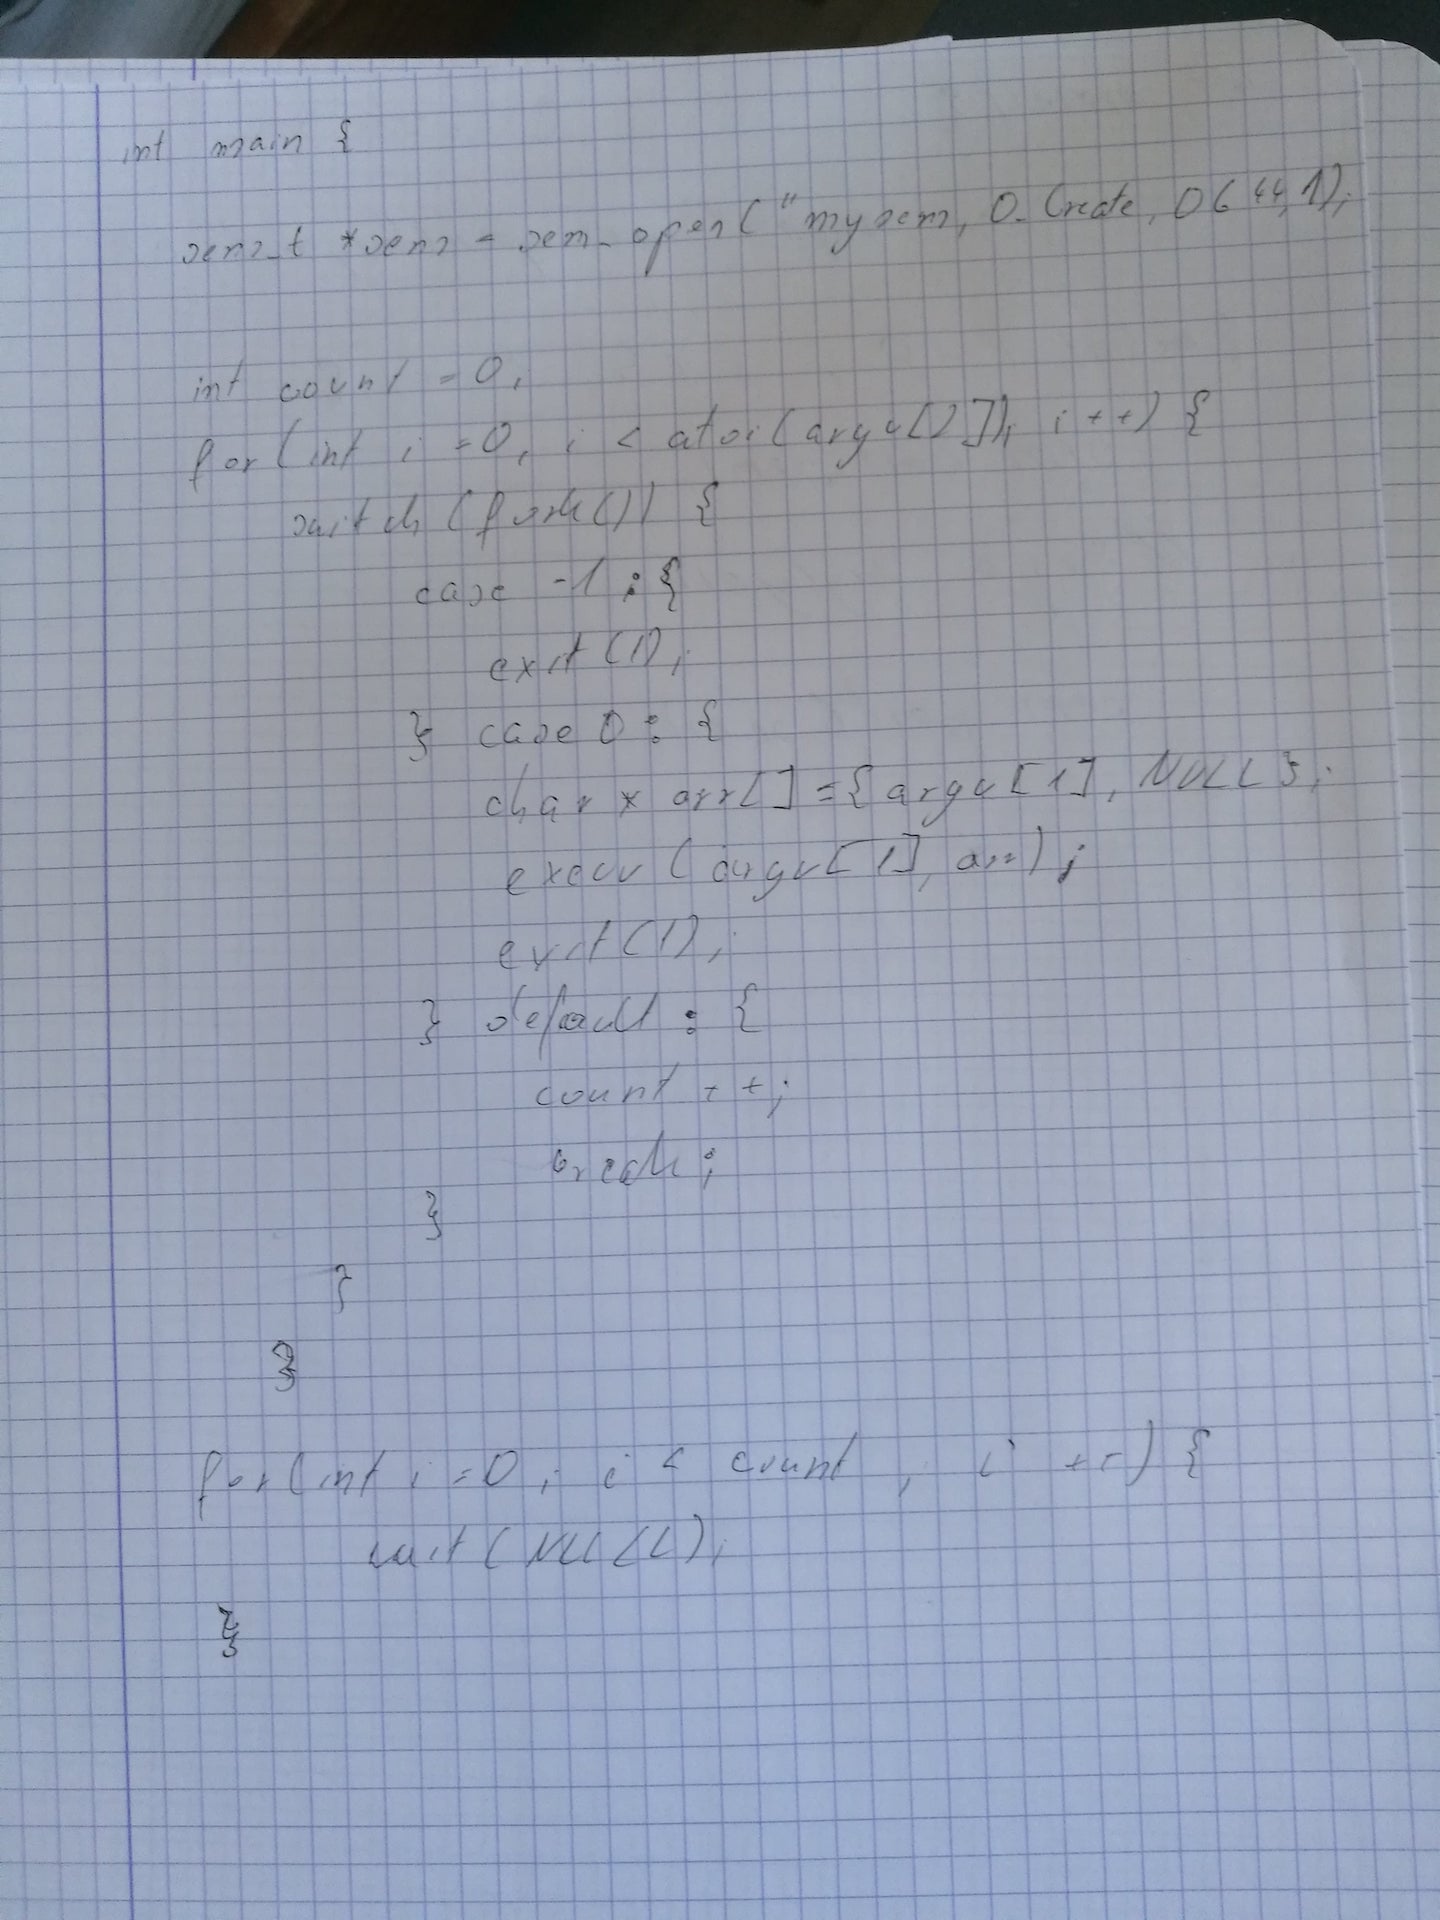 int main {
sem_t *sem = sem_open("mysem, O_Create, 0644, 1);
int count = 0;
for (int i = 0; i < atoi(argv[2]); i++) {
switch (fork()) {
case -1 : {
exit (1);
} case 0 : {
char * arr[] = {argv[1], NULL};
execv (argv[1], arr);
exit (1);
} default : {
count ++;
break;
}
}
}
for (int i = 0; i < count; i ++) {
wait (NULL);
}